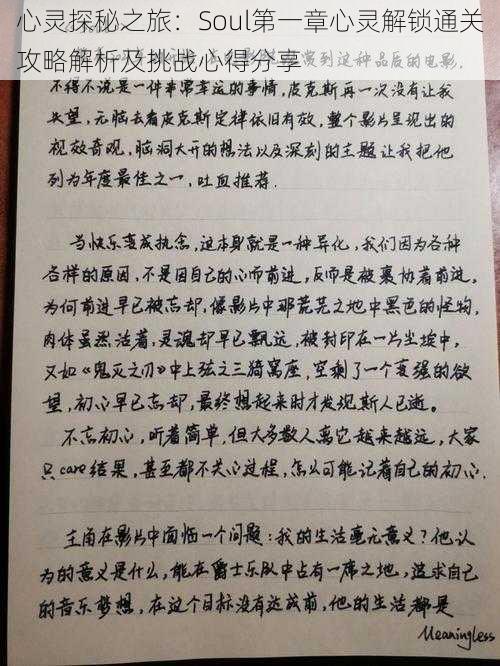 心灵探秘之旅：Soul第一章心灵解锁通关
攻略解析及挑战心得分享
赏到这种品质的电影，
不得不说是一件非常幸运的事情，皮克斯再一次没有让我
失望，无脑去看皮克斯定律依旧有效，整个影片呈现出的
视效奇观，脑洞大开的想法以及深刻的主题让我把他
列为年度最佳之一，吐血推荐.
当快乐变成执念，这本身就是一种异化，我们因为各种
各样的原因，不是因自己的心而前进，反而是被裹协着前进。
为何前进早已被忘却，像影片中那荒芜之地中黑色的怪物，
肉体虽然活着，灵魂却早已飘远，被封印在一片尘埃中，
又如《鬼灭之刃》中上弦之三猗窝座，空剩了一个变强的欲
望，初心早已忘却，最终想起来时才发现斯人已逝。
不忘初心，听着简单，但大多数人离它越来越远，大家
只care结果，甚至都不关心过程，怎么可能记着自己的初心.
主角在影片中面临一个问题：我的生活毫无意义？他认
为的意义是什么，能在爵士乐队中占有一席之地，追求自己
的音乐梦想，在这个目标没有达成前，他的生活都是
Meaningless